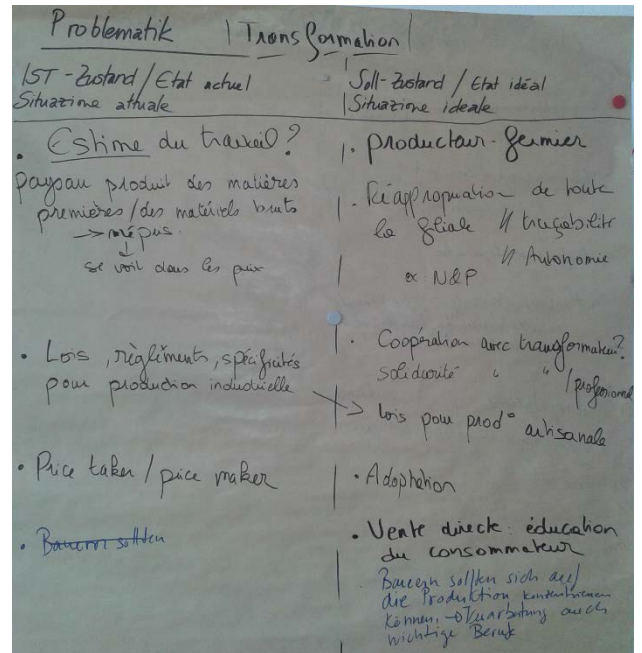 Problematik | Transformation |
IST-Zustand / Etat actuel
Situazione attuale
Soll-Zustand / Etat idéal
Situazione ideale
• Estime du travail?
paysan produit des matières
premières / des matériels bruts
→ mépris
↓
se voit dans les prix
• Lois, règlements, spécificités
pour production industrielle
• Price taker / price maker
• Bauern sollten
• Producteur-fermier
• Réappropriation de toute
la filiale // traçabilité
// Autonomie
N&P
• Coopération avec transformateur?
solidarité " " / professionnel
→ lois pour prod° artisanale
• Adaptation
• Vente directe: éducation
du consommateur
Bauern sollten sich auf
die Produktion konzentrieren
können, → Verarbeitung auch
wichtige Beruf